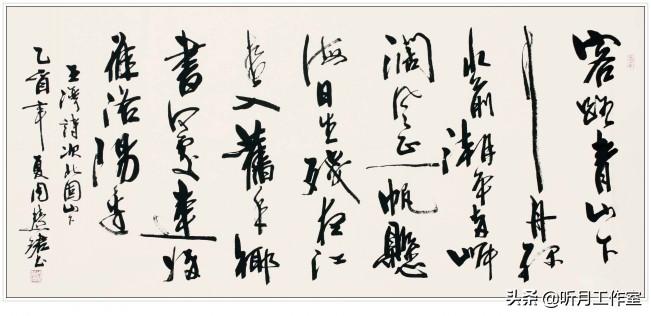 客路青山下
行舟緑
水前潮平两岸
阔风正一帆懸
海日生残夜江
春入舊年鄉
書何處達歸
雁洛陽邊
王灣詩次北固山下
乙酉年夏周慧珺书
头条 @听月工作室